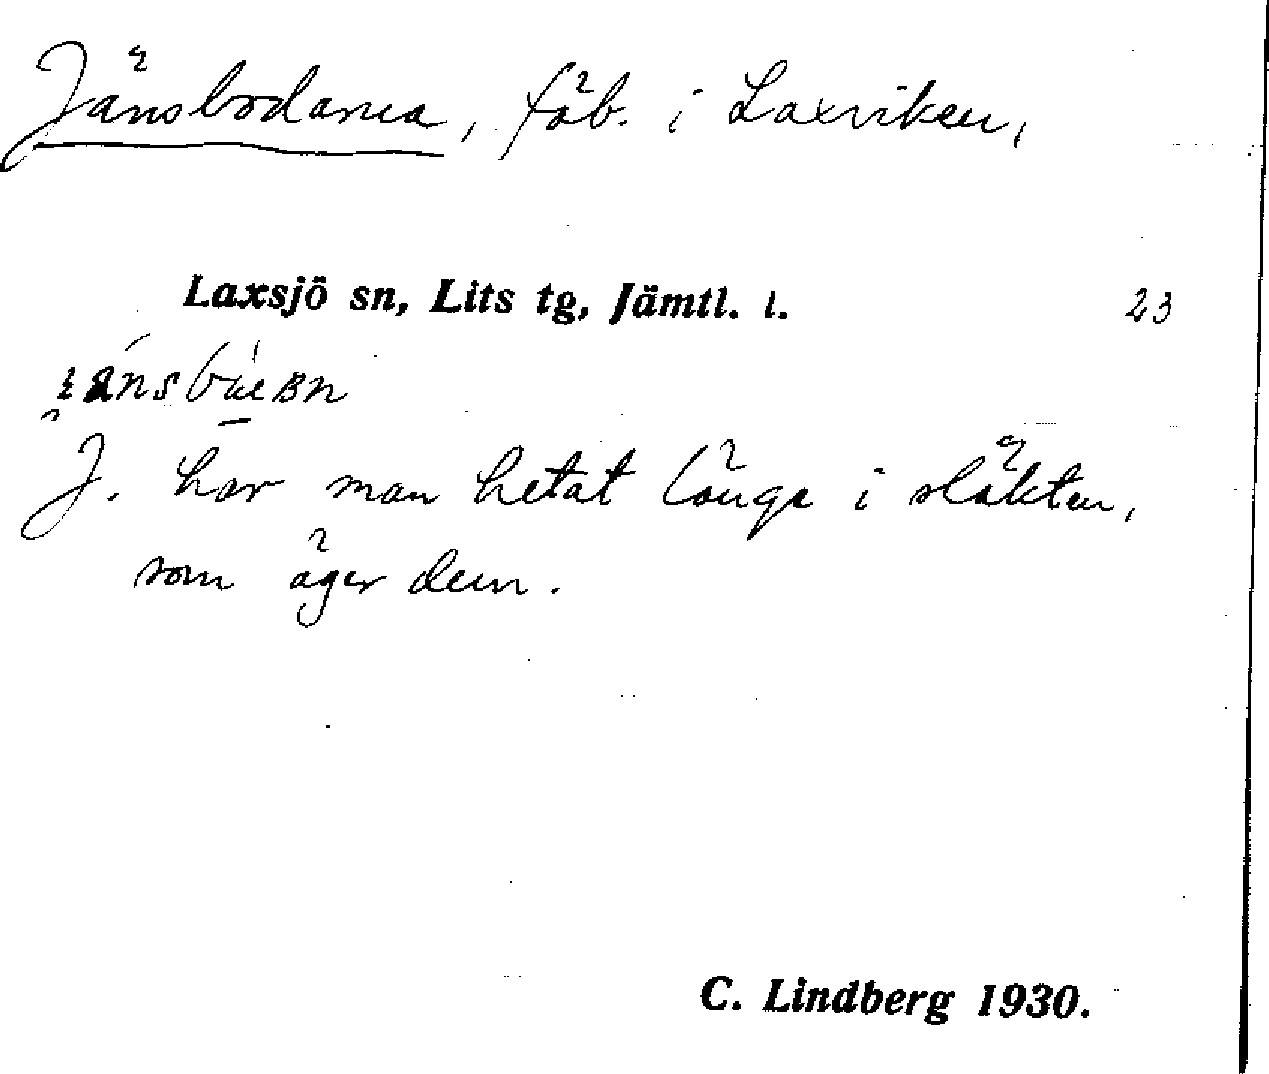 Jänsbodarna, fäb. i Laxviken,
Laxsjö sn, Lits tg, Jämtl. l.
23
J. har man hetat länge i släkten,
som äger dem.
C. Lindberg 1930.